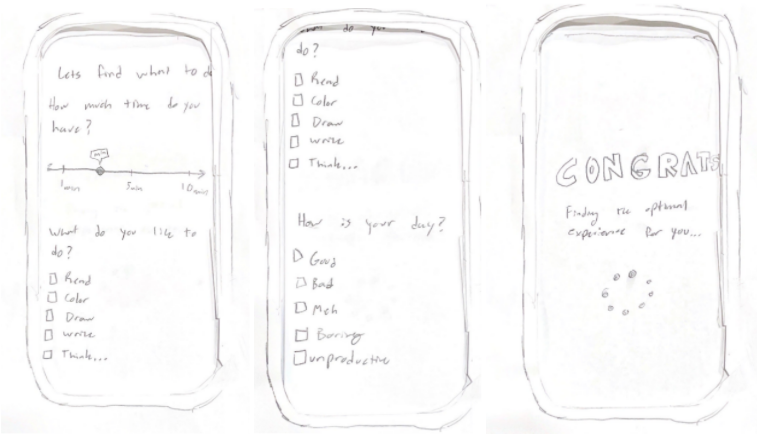 Lets find what to d
How much time do you
have?
1min 5min 10mins
What do you like to
do?
Read
Color
Draw
write
Think...
do you
do?
Read
Color
Draw
write
Think...
How is your day?
Good
Bad
Meh
Boring
unproductive
CONGRATS
Finding the optimal
experience for you...